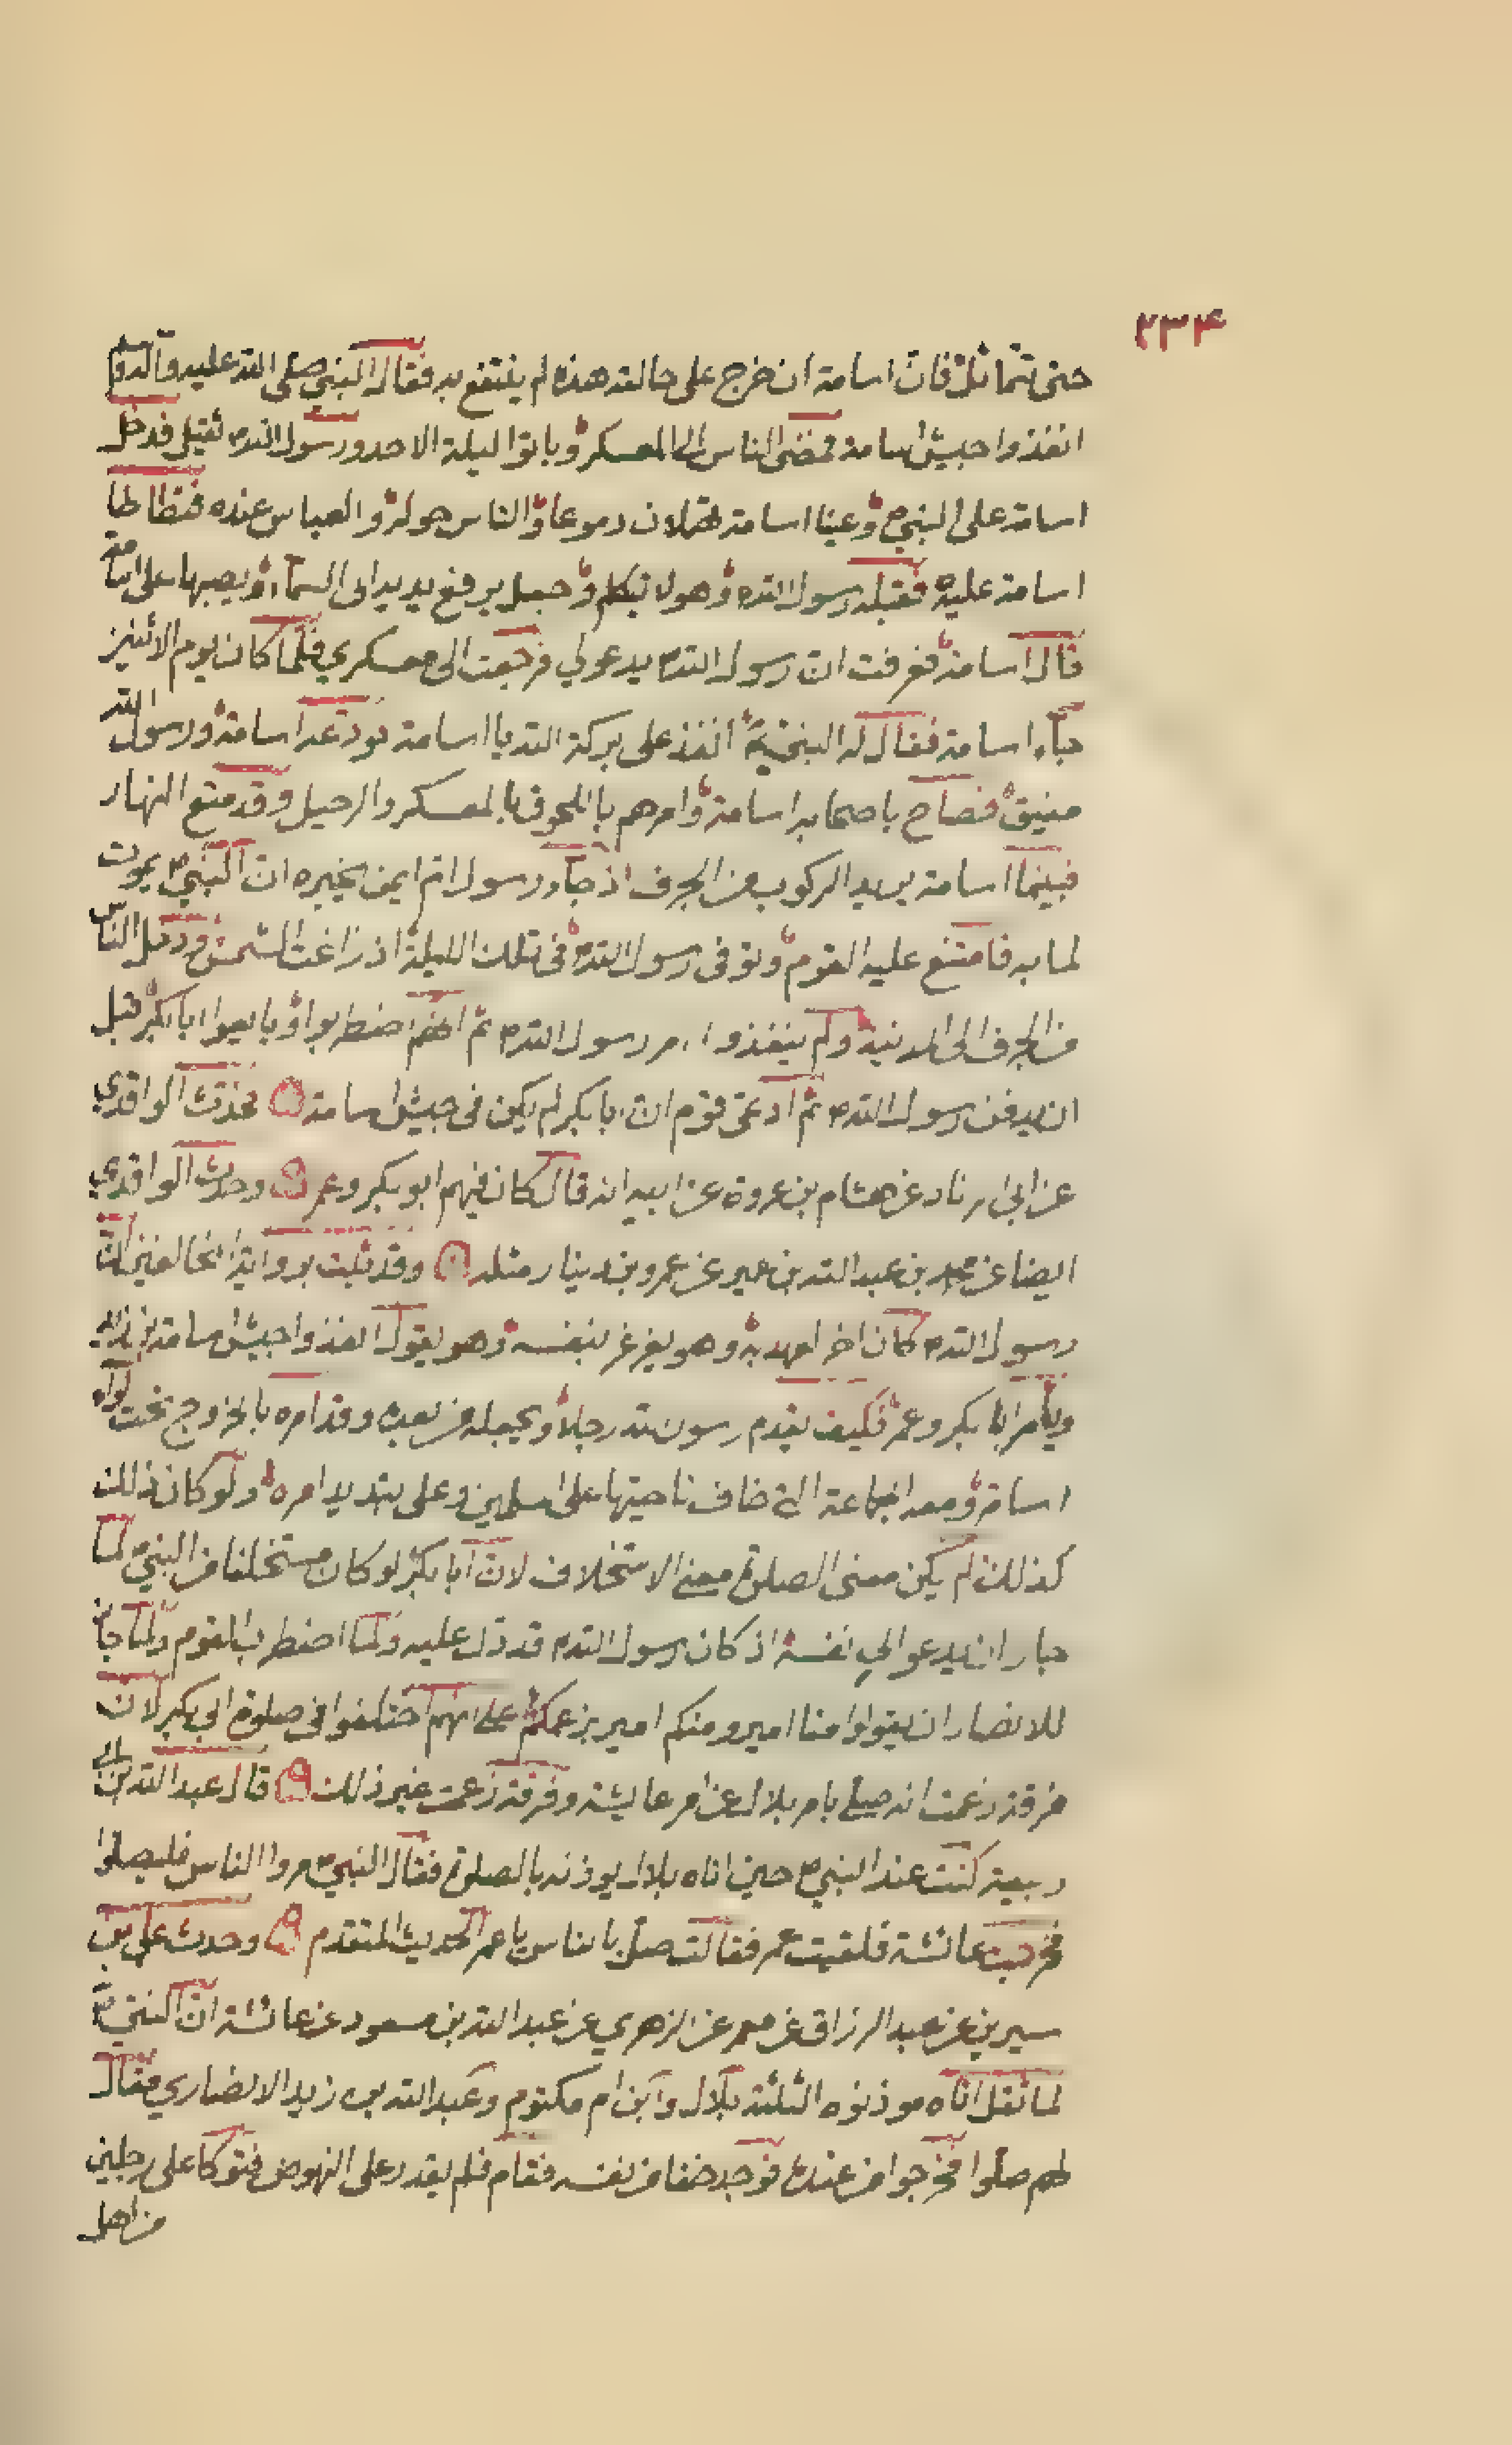 ٢٣۴
حتى تتماثل فان اسامة ان خرج على حالته هذه لم ينتفع به فقال النبي صلى الله عليه وآله وسلم
انفذوا جيش اسامة فمضى الناس الى المعسكر وباتوا ليلة الاحد ورسول الله ثقيل فدخل
اسامة على النبي ص وعينا اسامة تهملان دموعا والناس حوله والعباس عنده فتطاطا
اسامة عليه فقبله رسول الله وهو لا يتكلم وجعل يرفع يديه الى السماء ويصبها على اسامة
قال اسامة فعرفت ان رسول الله يدعو لي فرجعت الى معسكري فلما كان يوم الاثنين
جاء اسامة فقال له النبي ص انفذ على بركة الله يا اسامة فودعه اسامة ورسول الله
مفيق فصاح باصحابه اسامة وامرهم باللحوق بالمعسكر والرحيل وقد متع النهار
فبينما اسامة يريد الركوب من الجرف اذ جاءه رسول ام ايمن يخبره ان النبي ص يموت
لما به فامتنع عليه القوم وتوفى رسول الله في تلك الليلة اذ زاغت الشمس ودخل الناس
من الجرف الى المدينة ولم ينفذوا امر رسول الله ثم انهم اضطربوا وبايعوا ابا بكر قبل
ان يدفن رسول الله ثم ادعى قوم ان ابا بكر لم يكن في جيش اسامة فحدث الواقدي
عن ابن ابي زناد عن هشام بن عروة عن ابيه انه قال كان فيهم ابو بكر وعمر وحدث الواقدي
ايضا عن محمد بن عبد الله بن عمير عن عمرو بن دينار مثله وقد ثبت برواية المخالفين ان
رسول الله كان اخر لعهد به وهو يغرغر بنفسه وهو يقول انفذوا جيش اسامة بن زيد
ويأمر ابا بكر وعمر فكيف يقدم رسول الله رجلا ويجعله من بعده وقد امره بالخروج تحت لواء
اسامة ومعه الجماعة التي خاف ناحيتها على المسلمين وعلى تبديد امره ولو كان ذلك
كذلك لم يكن معنى الصلوة معنى الاستخلاف لان ابا بكر لو كان مستخلفا من النبي ص لما
جاز ان يدعو الى نفسه اذ كان رسول الله قد دل عليه ولما اضطرب القوم ولما جاز
للانصار ان يقولوا منا امير ومنكم امير بزعمكم على انهم اختلفوا في صلوة ابي بكر لان
فرقة زعمت انه صلى بامر بلال عن امر عايشة وفرقة زعمت غير ذلك قال عبد الله بن ابي
ربيعة كنت عند النبي ص حين اتاه بلال يوذنه بالصلوة فقال النبي ص مروا الناس فليصلوا
فخرجت عائشة فلقيت عمر فقالت صل بالناس يا عمر الحديث المتقدم وحدث علي بن
سيرين عن عبد الرزاق عن معمر عن الزهري عن عبد الله بن مسعود عن عائشة ان النبي ص
لما ثقل اتاه موذنوه الثلثة بلال وابن ام مكتوم وعبد الله بن زيد الانصاري فقال
لهم صلوا فخرجوا من عنده فوجد خفا من نفسه فقام فلم يقدر على النهوض فتوكأ على رجلين
من اهل